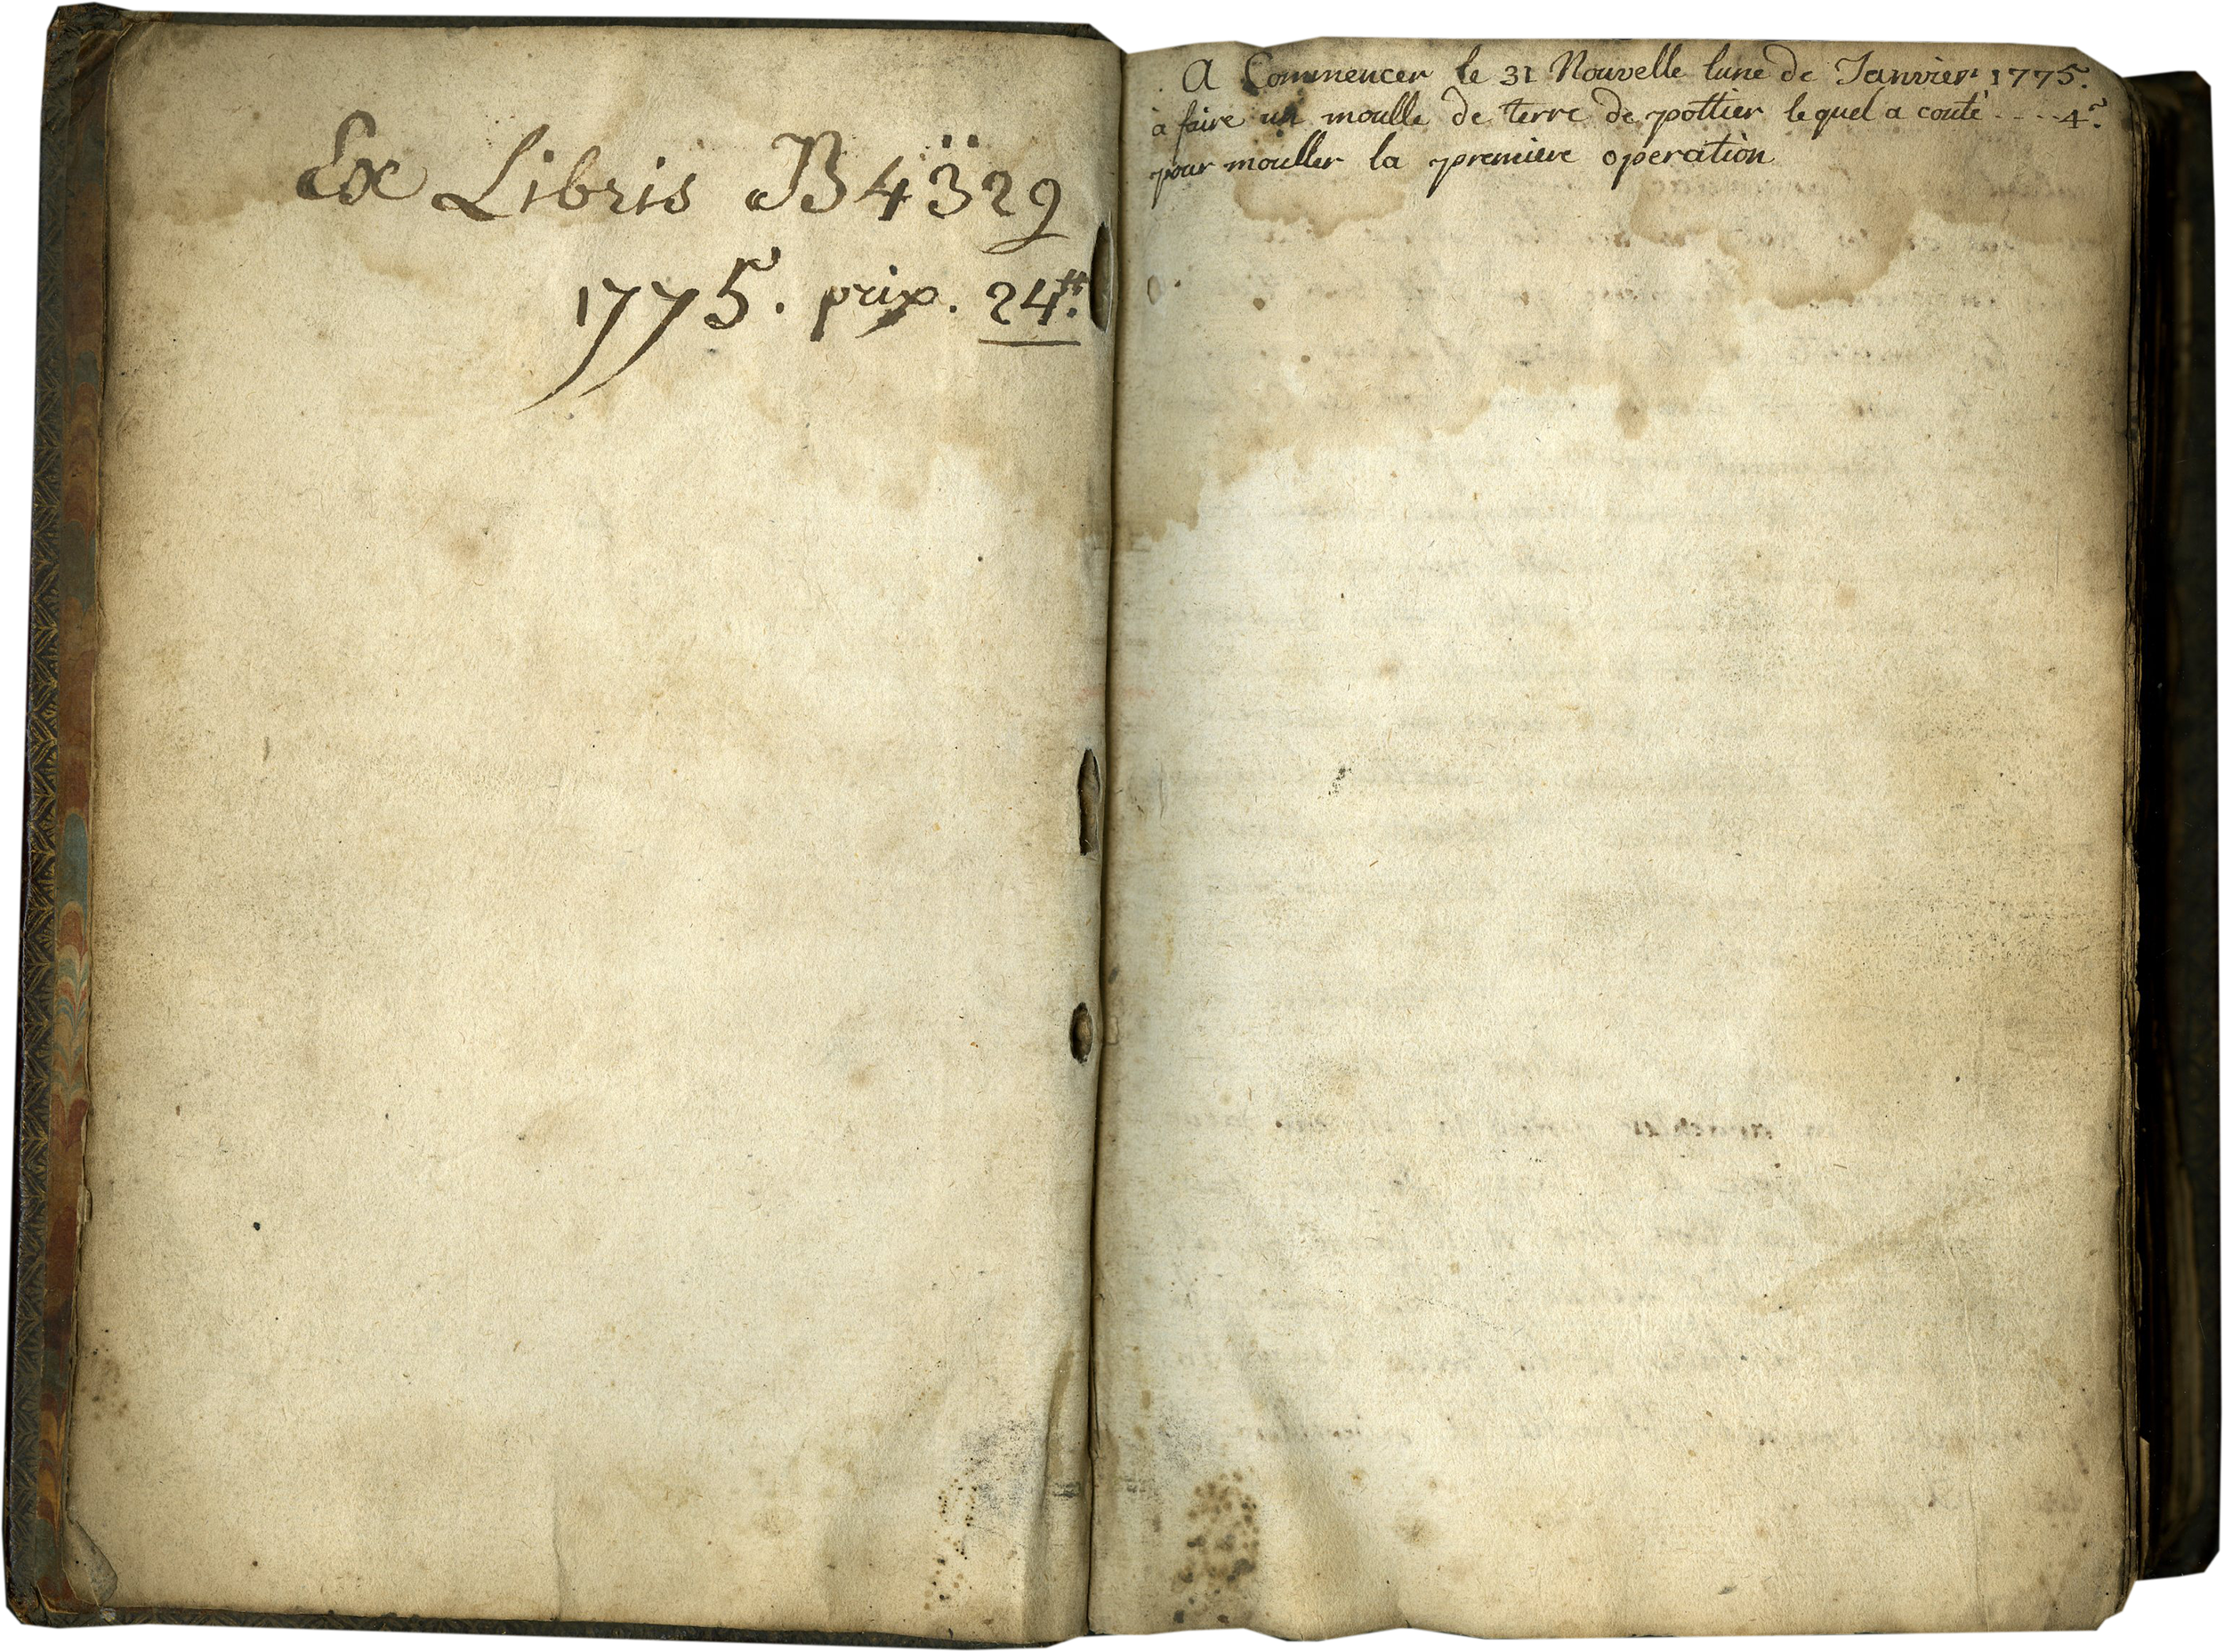 Ex Libris B 4 3̈ 2 9
1775. prix. 24ᵗᵗ.
A Commencer le 31 Nouvelle lune de Janvier 1775.
a faire un moulle de terre de pottier le quel a couté ---- 4ˢ.
pour mouller la premiere operation